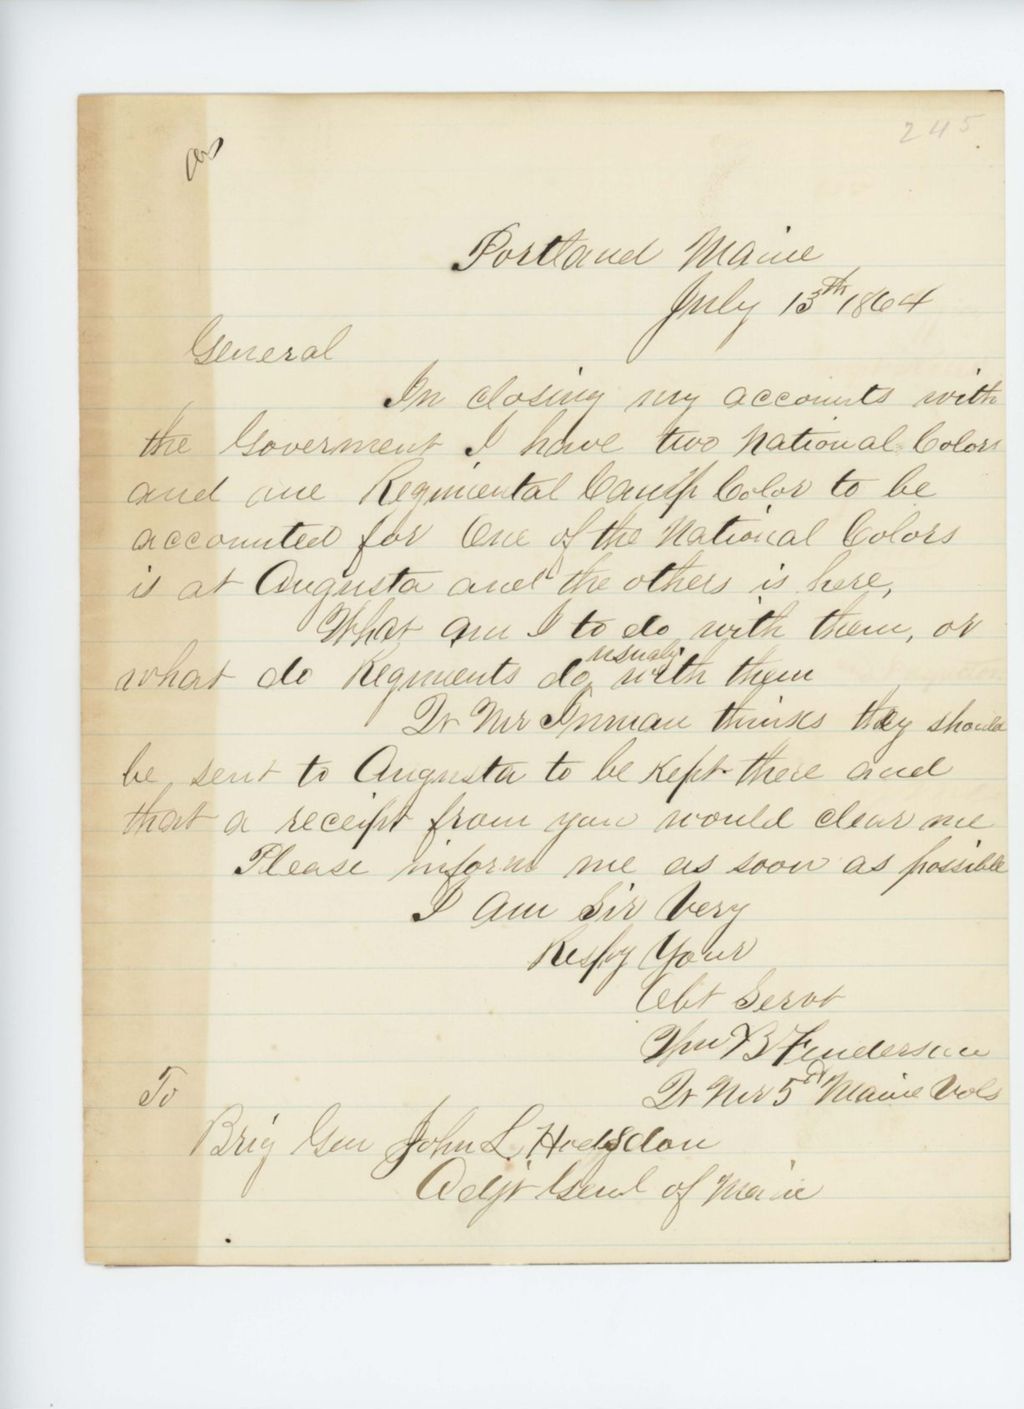 245
Ans
Portland Maine
July 13th 1864
General
In closing my accounts with
the Goverment I have two National Colors
and one Regimental Camp Color to be
accounted for One of the National Colors
is at Augusta and the others is here,
What am I to do with them, or
usualy
what do Regiments do with them
Qr Mr Inman thinks they should
be sent to Augusta to be kept there and
that a receipt from you would clear me
Please inform me as soon as possible
I am Sir Very
Respy Your
Obt Servt
Wm B Fenderson
Qr Mr 5th Maine Vols
To
Brig Gen John L Hodsdon
Adjt Genl of Maine